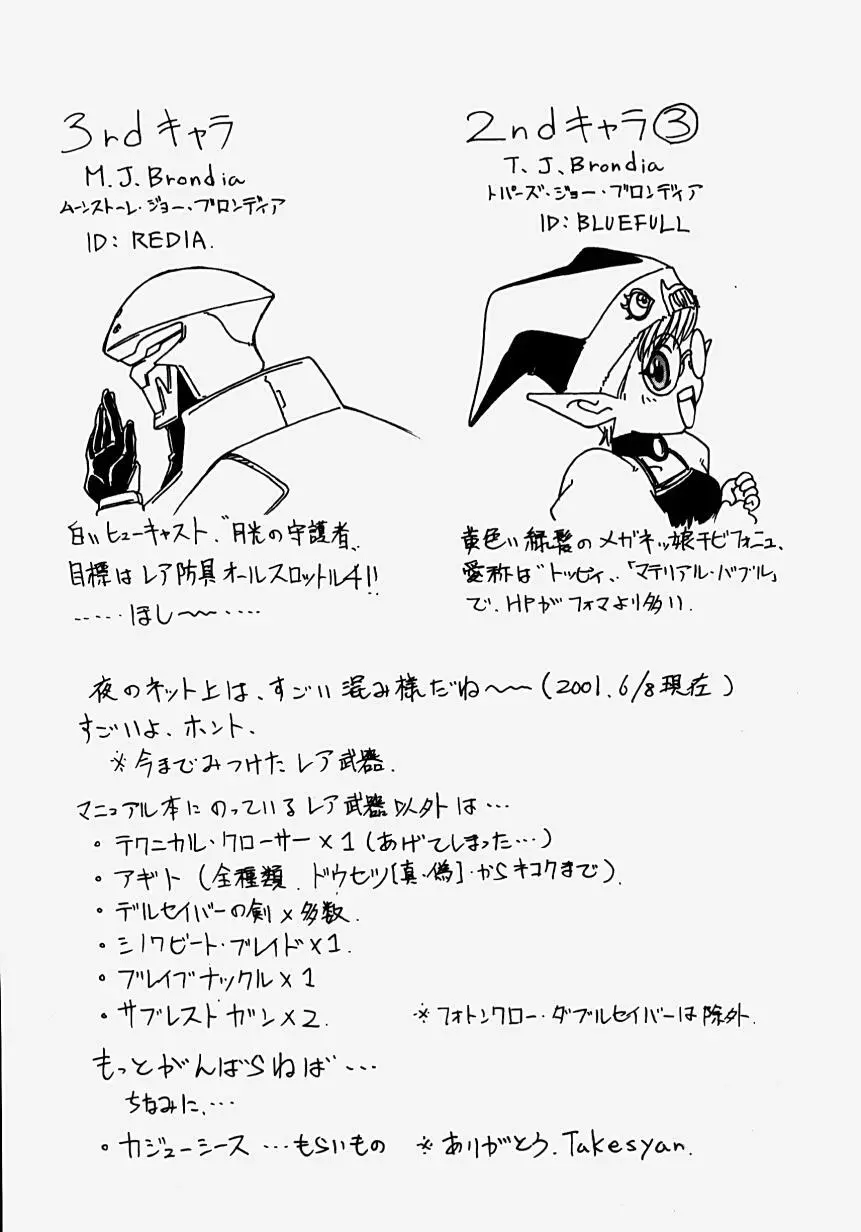 3rdキャラ
M.J.Brondia
ムーンストーレ・ジョー・ブロンディア
ID: REDIA.
白いヒューキャスト、"月光の守護者"
目標はレア防具オールスロットル4!!
……ほし〜〜……
2ndキャラ③
T.J.Brondia
トパーズ・ジョー・ブロンディア
ID: BLUEFULL
黄色い緑髪のメガネッ娘チビフォニュ、
愛称は"トッピィ"、「マテリアル・バブル」
で、HPがフォマより多い.
夜のネット上は、すごい混み様だね〜〜(2001.6/8現在)
すごいよ、ホント、
※今までみつけたレア武器.
マニュアル本にのっているレア武器以外は…
・テクニカル・クローサー×1(あげてしまった…)
・アギト(全種類.ドウセツ[真・偽]・からキコクまで).
・デルセイバーの剣×多数.
・シノワビート・ブレイド×1.
・ブレイブナックル×1
・サプレストガン×2. ※フォトンクロー・ダブルセイバーは除外.
もっとがんばらねば…
ちなみに、…
・カジューシース…もらいもの ※ありがとう.Takesyan.